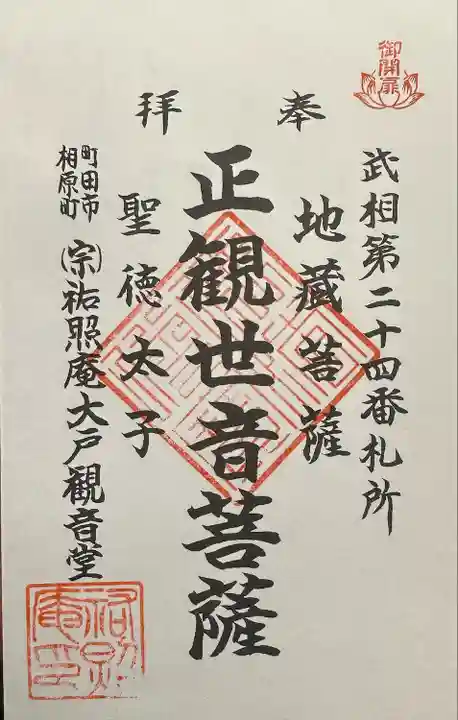 御開扉
奉拝
武相第二十四番札所
地蔵菩薩
正観世音菩薩
聖徳太子
町田市
相原町
㈪祐照庵大戸観音堂
祐照庵印